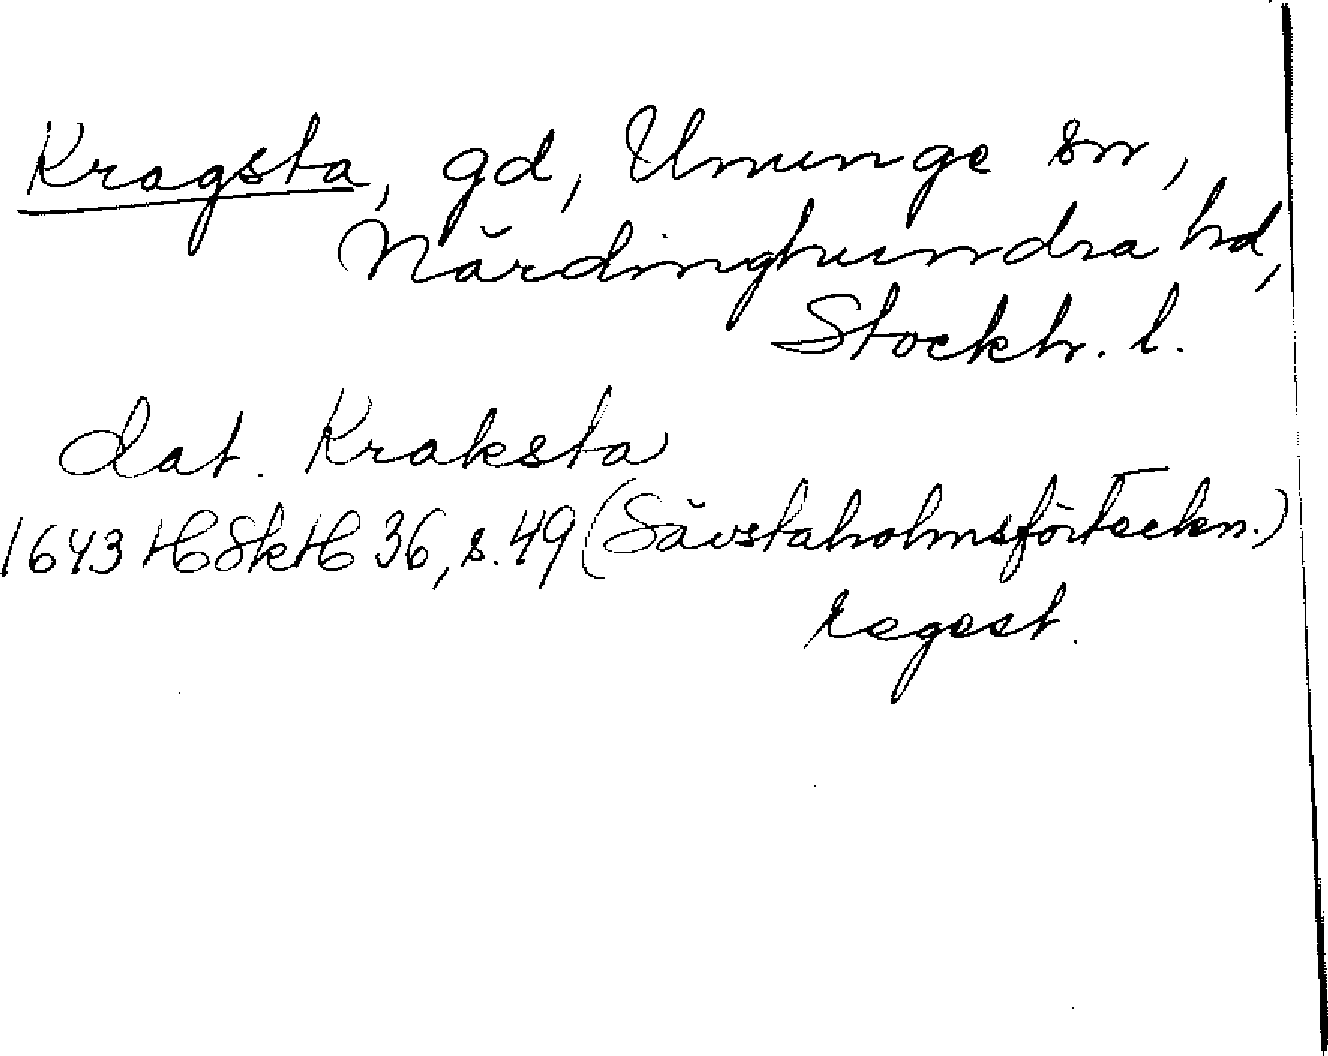 Kragsta, gd, Ununge sn,
Närdinghundra hd,
Stockh. l.
dat. Kraksta
1643 HSkH 36, s. 49 (Sävstaholmsförteckn.)
regest.